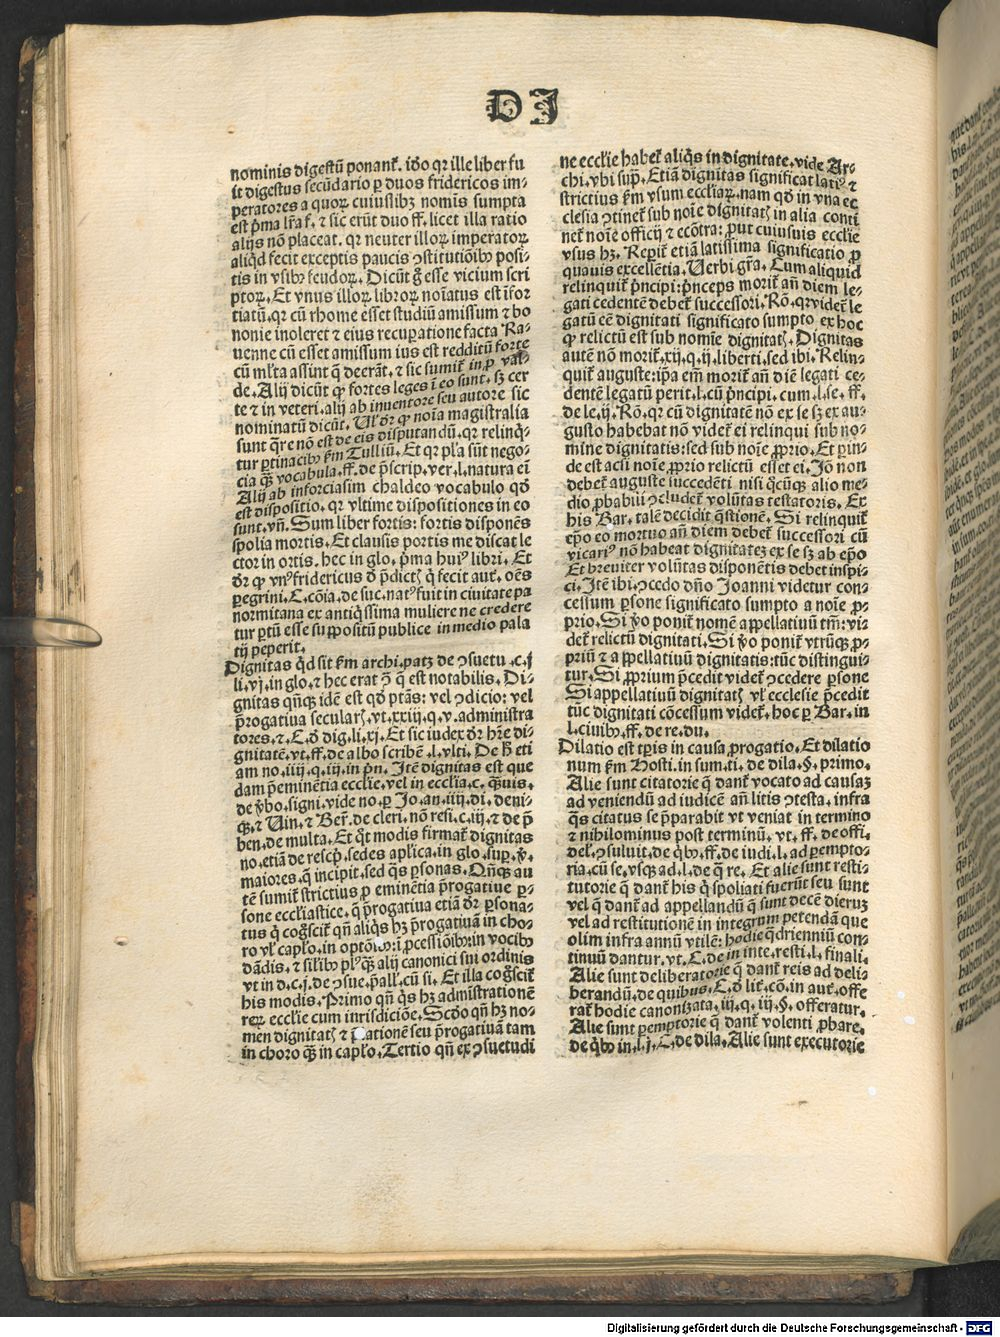 D I
nominis digestū ponant᷑. iđo qꝛ ille liber fu
it digestus secūdario ꝑ duos fridericos im⸗
peratores a quoꝝ cuiuslibꝫ nomīs sumpta
est pͥma lr̄a f. ⁊ sic erūt duo ff. licet illa ratio
alijs nō placeat. qꝛ neuter illoꝝ imperatoꝝ
aliqͥd fecit exceptis paucis ꝯstitutiōibꝰ posi⸗
tis in vsibꝰ feudoꝝ. Dicūt gͦ esse vicium scri
ptoꝝ. Et vnus illoꝝ libroꝝ noīatus est īfor
tiatū. qꝛ cū rhome esset studiū amissum ⁊ bo
nonie inoleret ⁊ eius recuꝑatione facta Ra⸗
uenne cū esset amissum ius est redditū forte
cū ml̄ta assint q̄ deerāt. ⁊ sic sumit᷑ in ꝓ val⸗
de. Alij dicūt ꝙ fortes leges ī eo sunt. sꝫ cer
te ⁊ in veteri. alij ab inuentore seu autore sic
nominatū dicūt. Ul̓ dr̄ ꝙ noīa magistralia
sunt q̄re nō est de eis disputandū. qꝛ relinqͥ⸗
tur ꝑtinacibꝰ ẜm Tulliū. Et qꝛ pl̓a sūt nego⸗
cia qͣꝫ vocabula. ff. de p̄scrip. ver. l. natura eī
Alij ab inforciasim chaldeo vocabulo qđ
est dispositio. qꝛ vltime dispositiones in eo
sunt. vn̄. Sum liber fortis: fortis disponēs
spolia mortis. Et clausis portis me discat le
ctor in ortis. hec in glo. pͥma huiꝰ libri. Et
dr̄ ꝙ vnꝰ fridericus đ p̄dictꝭ qͥ fecit aut. oēs
ꝑegrini. C. cōia. de suc. natꝰ fuit in ciuitate pa
normitana ex antiqͥssima muliere ne credere
tur ꝑtū esse suppositū publice in medio pala
tij peperit.
Dignitas qͥd sit ẜm archi. patꝫ de ꝯsuetu. c. j
li. vj. in glo. ⁊ hec erat ꝯ q̄ est notabilis. Di⸗
gnitas qn̄qꝫ idē est qđ ptās: vel ꝯdicio: vel
p̄rogatiua secularꝭ. vt. xxiij. q. v. administra
tores. ⁊. C. đ dig. li. xj. Et sic iudex dr̄ hr̄e di⸗
gnitatē. vt. ff. de albo scribē. l. vlti. De h̄ eti
am no. iiij. q. iij. in pn̄. Itē dignitas est que
dam p̄eminētia ecclīe. vel in ecclīa. c. qͣuis.
de v̓bo. signi. vide no. ꝑ Jo. an. iiij. di. deni⸗
qꝫ. ⁊ Uin. ⁊ Ber. de cleri. nō resi. c. iij. ⁊ de p̄
ben. de multa. Et qͦt modis firmat᷑ dignitas
no. etiā de rescp̄. sedes apl̓ica. in glo. suꝑ. v̓.
maiores. q̄ incipit. sed qͣs ꝑsonas. Qn̄qꝫ au
tē sumit᷑ strictius ꝓ eminētia p̄rogatiue ꝑ⸗
sone eccl̓iastice. q̄ p̄rogatiua etiā dr̄ ꝑsona⸗
tus q̄ cogͦscit᷑ qn̄ aliqͥs hꝫ p̄rogatiuā in cho⸗
ro vl̓ capl̓o. in optōibꝰ: ī ꝓcessiōibꝰ: in vocibꝰ
dādis. ⁊ sil̓ibꝰ plꝰqͣꝫ alij canonici sui ordinis
vt in d. c. j. de ꝯsue. p̄all. cū si. Et illa cogͦscit᷑
his modis. Primo qn̄ qͥs hꝫ admīstrationē
reꝝ ecclīe cum iurisdiciōe. Scđo qn̄ hꝫ no⸗
men dignitatꝭ ⁊ p̄lationē seu p̄rogatiuā tam
in choro qͣꝫ in capl̓o. Tertio qn̄ ex ꝯsuetudi
ne eccl̓ie habet᷑ aliqͥs in dignitate. vide Ar⸗
chi. vbi supͣ. Etiā dignitas significat latiꝰ ⁊
strictius ẜm vsum eccliaꝝ. nam qđ in vna ec
clesia ꝯtinet᷑ sub noīe dignitatꝭ in alia conti
net᷑ noīe officij ⁊ ecōtra: ꝓut cuiusuis ecclīe
vsus hꝫ. Reꝑit᷑ etiā latissima significatio ꝓ
quauis excellētia. Uerbi gr̄a. Cum aliquid
relinquit᷑ pͥncipi: pͥnceps morit᷑ an̄ diem le⸗
gati cedentē debet᷑ successori. Rō. qꝛ videt᷑ le
gatū eē dignitati significato sumpto ex hoc
ꝙ relictū est sub nomīe dignitatꝭ. Dignitas
autē nō morit᷑. xij. q. ij. liberti. sed ibi. Relin⸗
quit᷑ auguste: ip̄a em̄ morit᷑ an̄ diē legati ce⸗
dentē legatū perit. l. cū pͥncipi. cum. l. se. ff.
de le. ij. Rō. qꝛ cū dignitatē nō ex se sꝫ ex au⸗
gusto habebat nō videt᷑ ei relinqui sub no⸗
mine dignitatis: sed sub noīe ꝓprio. Et ꝑin⸗
de est acsi noīe ꝓprio relictū esset ei. Jō non
debet᷑ auguste succedēti nisi qͥcūqꝫ alio me⸗
dio ꝓbabiīi ꝯcludet᷑ volūtas testatoris. Ex
his Bar. talē decidit q̄stionē. Si relinquit᷑
ep̄o eo mortuo an̄ diem debet᷑ successori cū
vicariꝰ nō habeat dignitatem ex se sꝫ ab ep̄o
Et breuiter volūtas disponētis debet inspi⸗
ci. Itē ibi. ꝯcedo dn̄o Joanni videtur con⸗
cessum ꝑsone significato sumpto a noīe ꝓ⸗
prio. Si v̓o ponit᷑ nomē appellatiuū tm̄: vi⸗
det᷑ relictū dignitati. Si v̓o ponit᷑ vtrūqꝫ ꝓ⸗
priū ⁊ appellatiuū dignitatis: tūc distingui⸗
tur. Si ꝓprium p̄cedit videt᷑ ꝯcedere ꝑsone
Si appellatiuū dignitatꝭ vl̓ ecclesie p̄cedit
tūc dignitati cōcessum videt᷑. hoc ꝑ Bar. in
l. ciuibꝰ. ff. de re. du.
Dilatio est tꝑis in causa ꝓrogatio. Et dilatio
num ẜm Hosti. in sum. ti. de dila. §. primo.
Alie sunt citatorie q̄ dant᷑ vocato ad causaꝫ
ad veniendū ad iudicē an̄ litis ꝯtesta. infra
qͣs citatus se p̄parabit vt veniat in termino
⁊ nihilominus post terminū. vt. ff. de offi.
del. ꝯsuluit. de qͥbꝰ. ff. de iudi. l. ad ꝑempto⸗
ria. cū se. vsqꝫ ad. l. de q̄ re. Et alie sunt resti⸗
tutorie q̄ dant᷑ his qͥ spoliati fuerūt seu sunt
vel q̄ dant᷑ ad appellandū q̄ sunt decē dieruꝫ
vel ad restitutionē in integrum petendā que
olim infra annū vtilē: hodie q̄drienniū con⸗
tinuū dantur. vt. C. de in inte. resti. l. finali.
Alie sunt deliberatorie q̄ dant᷑ reis ad deli⸗
berandū. de quibus. C. đ lit. cō. in aut. offe
rat᷑ hodie canonizata. iij. q. iij. §. offeratur.
Alie sunt ꝑemptorie q̄ dant᷑ volenti ꝓbare.
de qͥbꝰ in. l. j. C. de dila. Alie sunt executorie
Digitalisierung gefördert durch die Deutsche Forschungsgemeinschaft - DFG